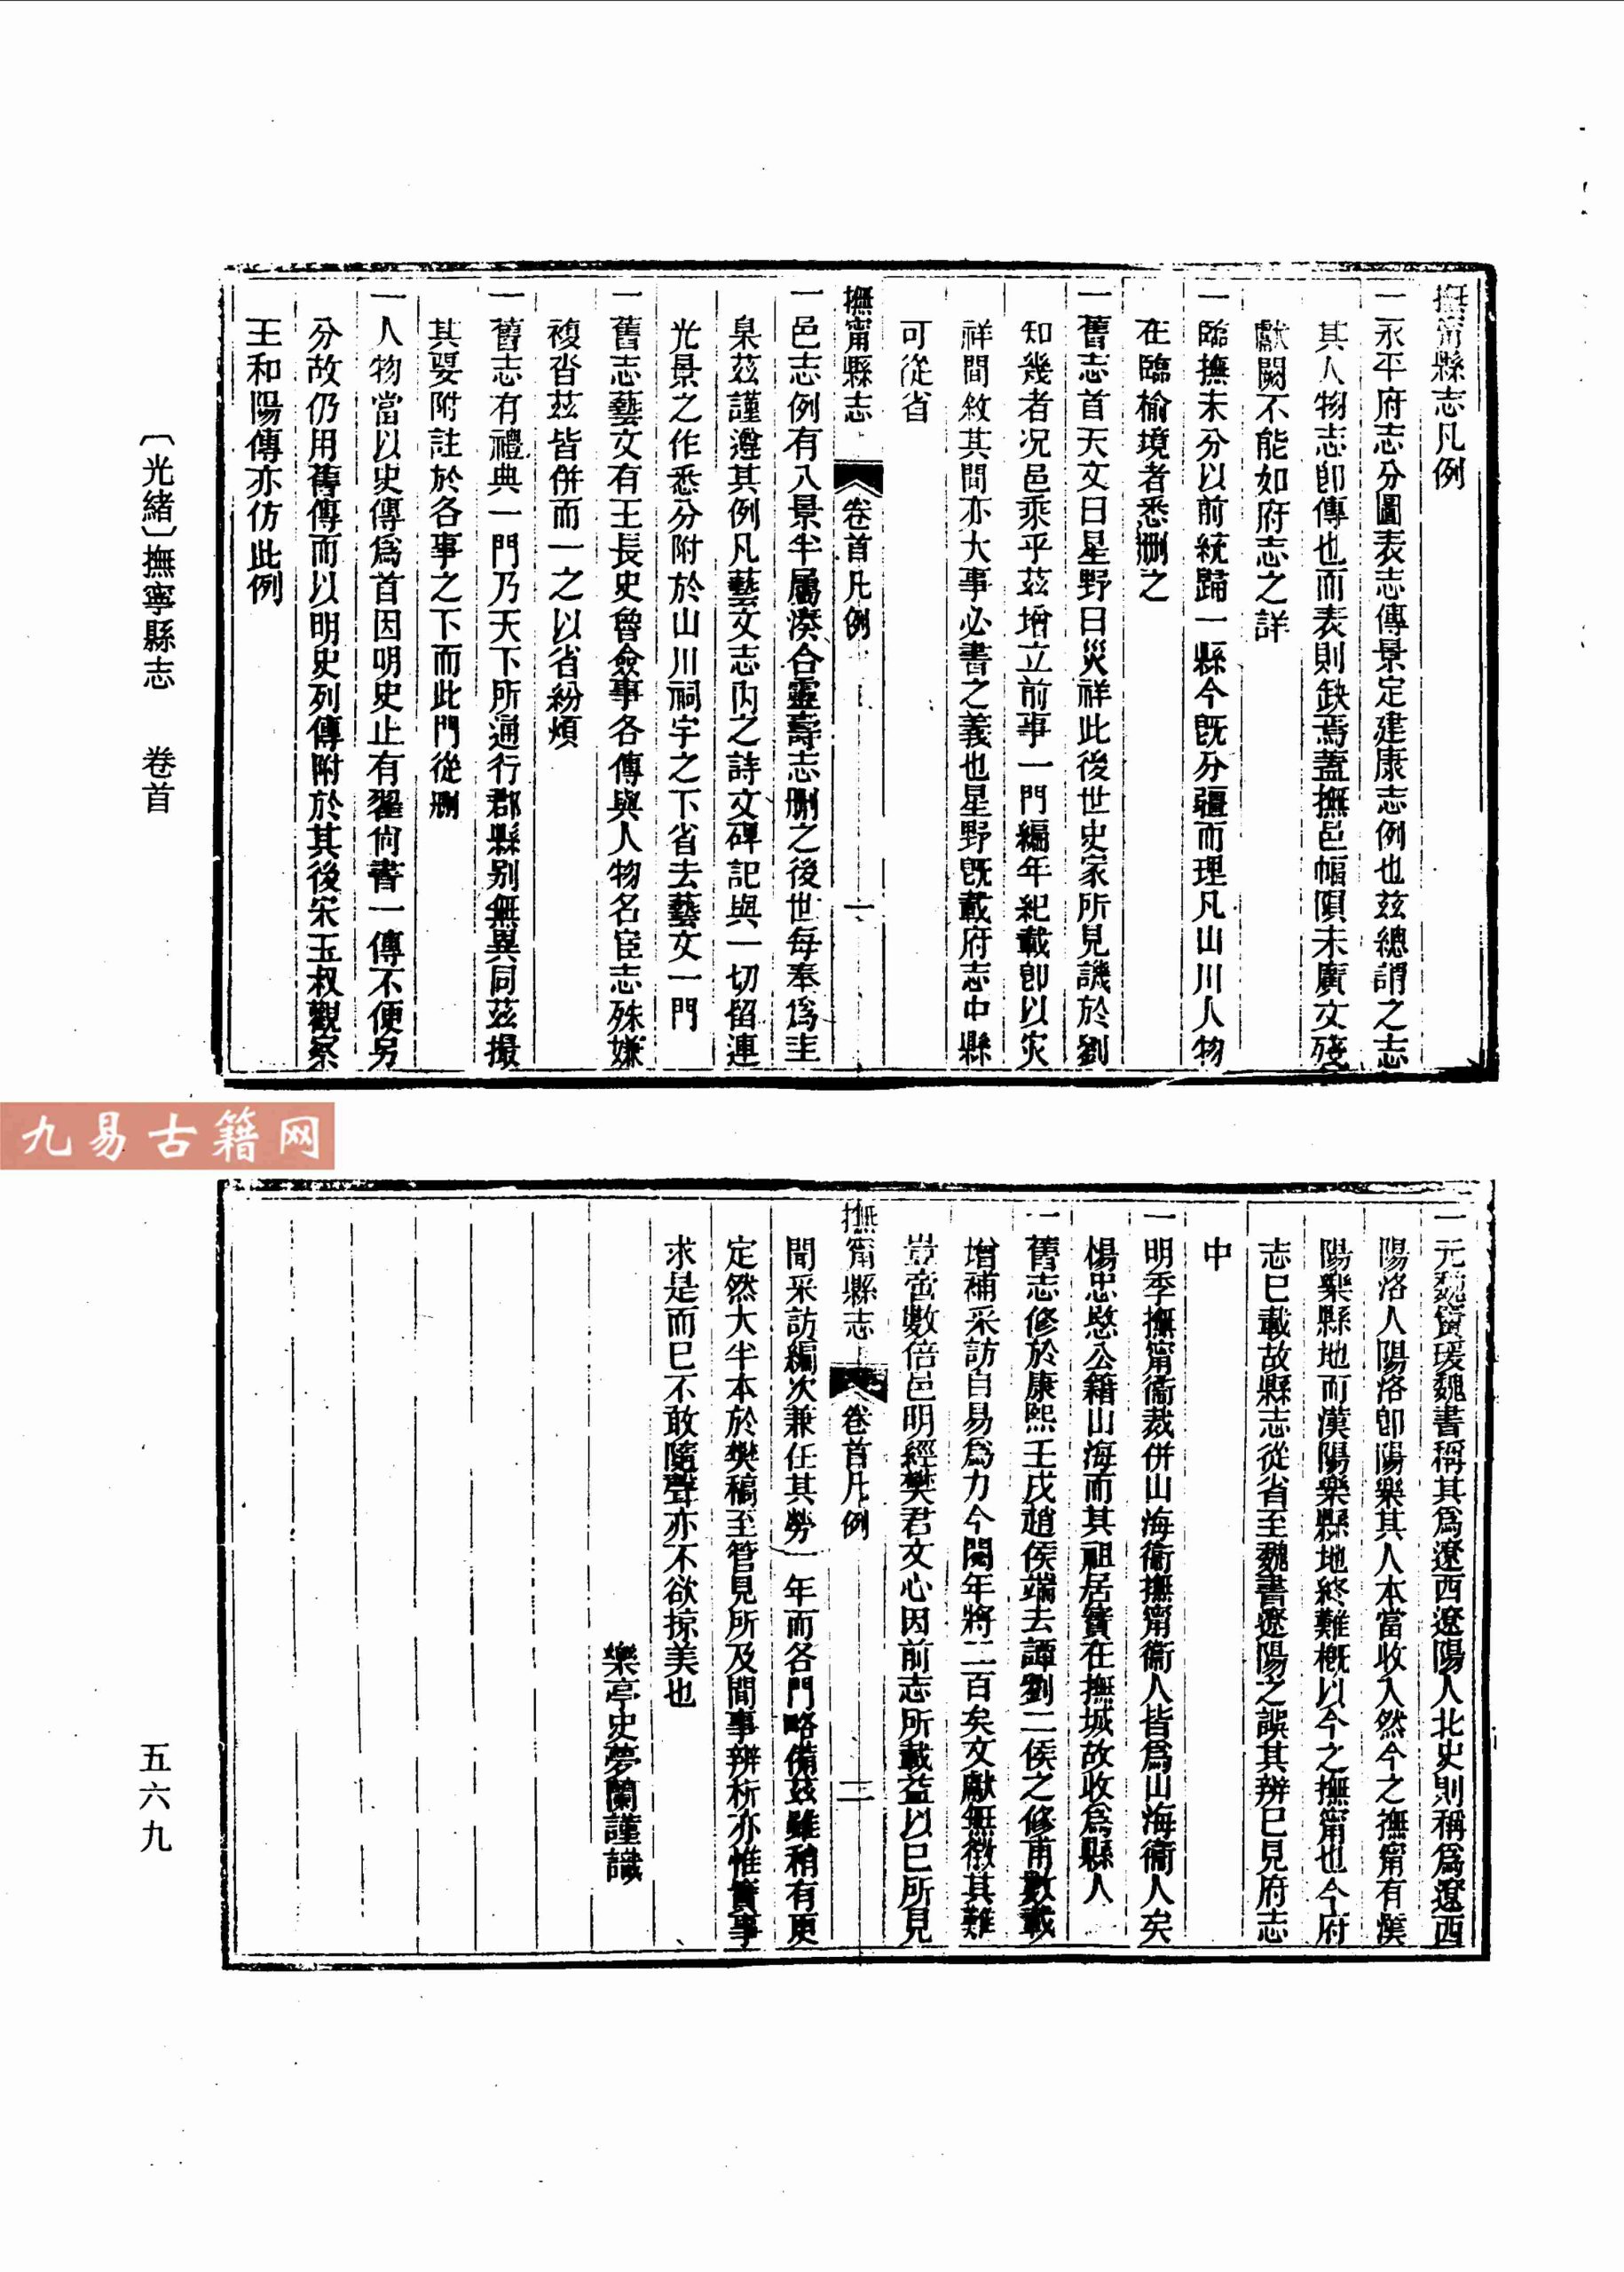 撫甯縣志凡例
一永平府志分圖表志傳景定建康志例也玆總謂之志
其人物志卽傳也而表則缺焉蓋撫邑幅隕未廣文殘
獻闕不能如府志之詳
一臨撫未分以前統歸一縣今旣分疆而理凡山川人物
在臨榆境者悉刪之
一舊志首天文曰星野曰災祥此後世史家所見譏於劉
知幾者况邑乘乎茲增立前事一門編年紀載卽以灾
祥間敘其間亦大事必書之義也星野旣載府志中縣
可從省
撫甯縣志 卷首凡例 一
一邑志例有八景半屬湊合靈壽志刪之後世每奉爲圭
臬茲謹遵其例凡藝文志內之詩文碑記與一切留連
光景之作悉分附於山川祠宇之下省去藝文一門
一舊志藝文有王長史魯僉事各傳與人物名宦志殊嫌
複沓茲皆併而一之以省紛煩
一舊志有禮典一門乃天下所通行郡縣别無異同茲撮
其要附註於各事之下而此門從刪
一人物當以史傳爲首因明史止有翟尙書一傳不便另
分故仍用舊傳而以明史列傳附於其後宋玉叔觀察
王和陽傳亦仿此例
〔光緒〕撫寧縣志 卷首
九易古籍网
一元魏竇瑗魏書稱其爲遼西遼陽人北史則稱爲遼西
陽洛人陽洛卽陽樂其人本當收入然今之撫甯有漢
陽樂縣地而漢陽樂縣地終難槪以今之撫甯也今府
志已載故縣志從省至魏書遼陽之誤其辨已見府志
中
一明季撫甯衞裁併山海衞撫甯衞人皆爲山海衞人矣
楊忠愍公籍山海而其祖居實在撫城故收爲縣人
一舊志修於康熙壬戌趙侯端去譚劉二侯之修甫數載
增補采訪自易爲力今閱年將二百矣文獻無徵其難
豈啻數倍邑明經樊君文心因前志所載益以已所見
撫甯縣志 卷首凡例 二
聞采訪編次兼任其勞一年而各門略備茲雖稍有更
定然大半本於樊稿至管見所及間事辨析亦惟實事
求是而已不敢隨聲亦不欲掠美也
樂亭史夢蘭謹識
五六九